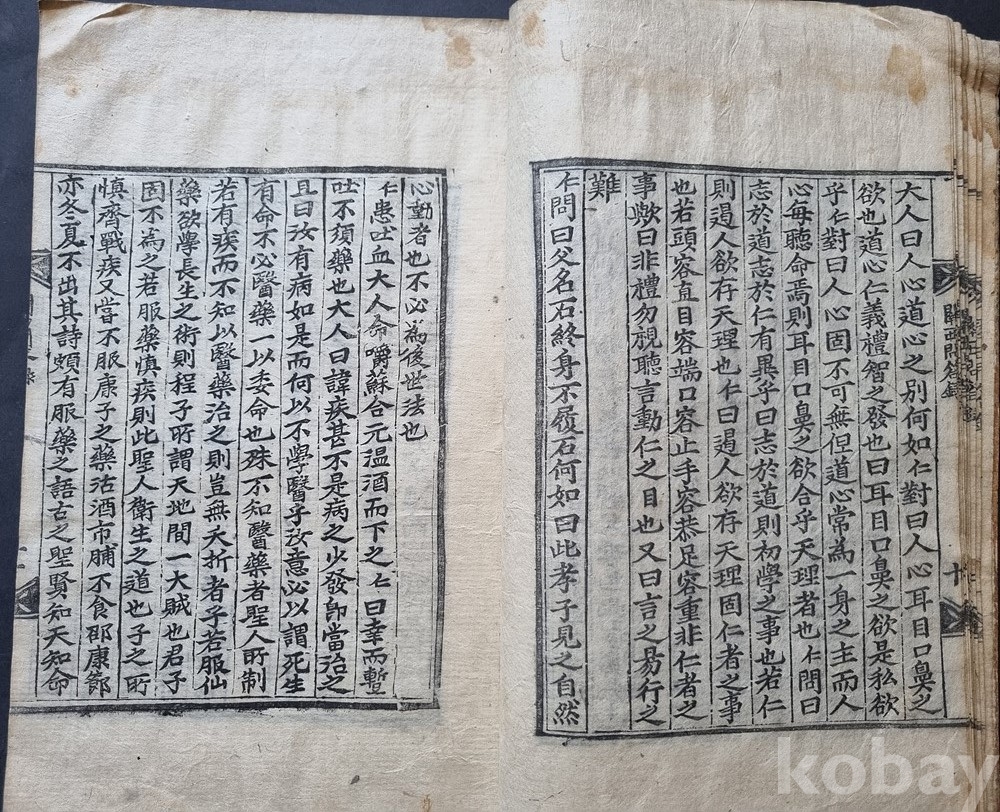 大人曰人心道心之別何如仁對曰人心耳目口鼻之
欲也道心仁義禮智之發也曰耳目口鼻之欲是私欲
乎仁對曰人心固不可無但道心常為一身之主而人
心每聽命焉則耳目口鼻之欲合乎天理者也仁問曰
志於道志於仁有異乎曰志於道則初學之事也若仁
則遏人欲存天理也仁曰遏人欲存天理固仁者之事
也若頭容直目容端口容止手容恭足容重非仁者之
事歟曰非禮勿視聽言動仁之目也又曰言之易行之
難
仁問曰父名石終身不履石何如曰此孝子見之自然
心動者也不必為後世法也
仁患吐血大人命嚼蘇合元溫酒而下之仁曰幸而暫
吐不須藥也大人曰諱疾甚不是病之少發卽當治之
且曰汝有病如是而何以不學醫乎汝意必以謂死生
有命不必醫藥一以委命也殊不知醫藥者聖人所制
若有疾而不知以醫藥治之則豈無夭折者乎若服仙
藥欲學長生之術則程子所謂天地間一大賊也君子
固不為之若服藥慎疾則此聖人衛生之道也子之所
慎齊戰疾又當不服康子之藥沽酒市脯不食邵康節
亦冬夏不出其詩頗有服藥之語古之聖賢知天知命
十
kobay